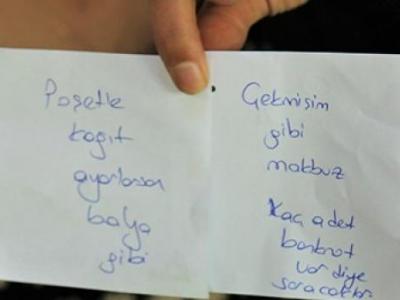 Poşetle
kağıt
ayarlasın
balya
gibi
Gekmişim
gibi
makbuz
Kaç adet
banknot
var diye
soracaklar